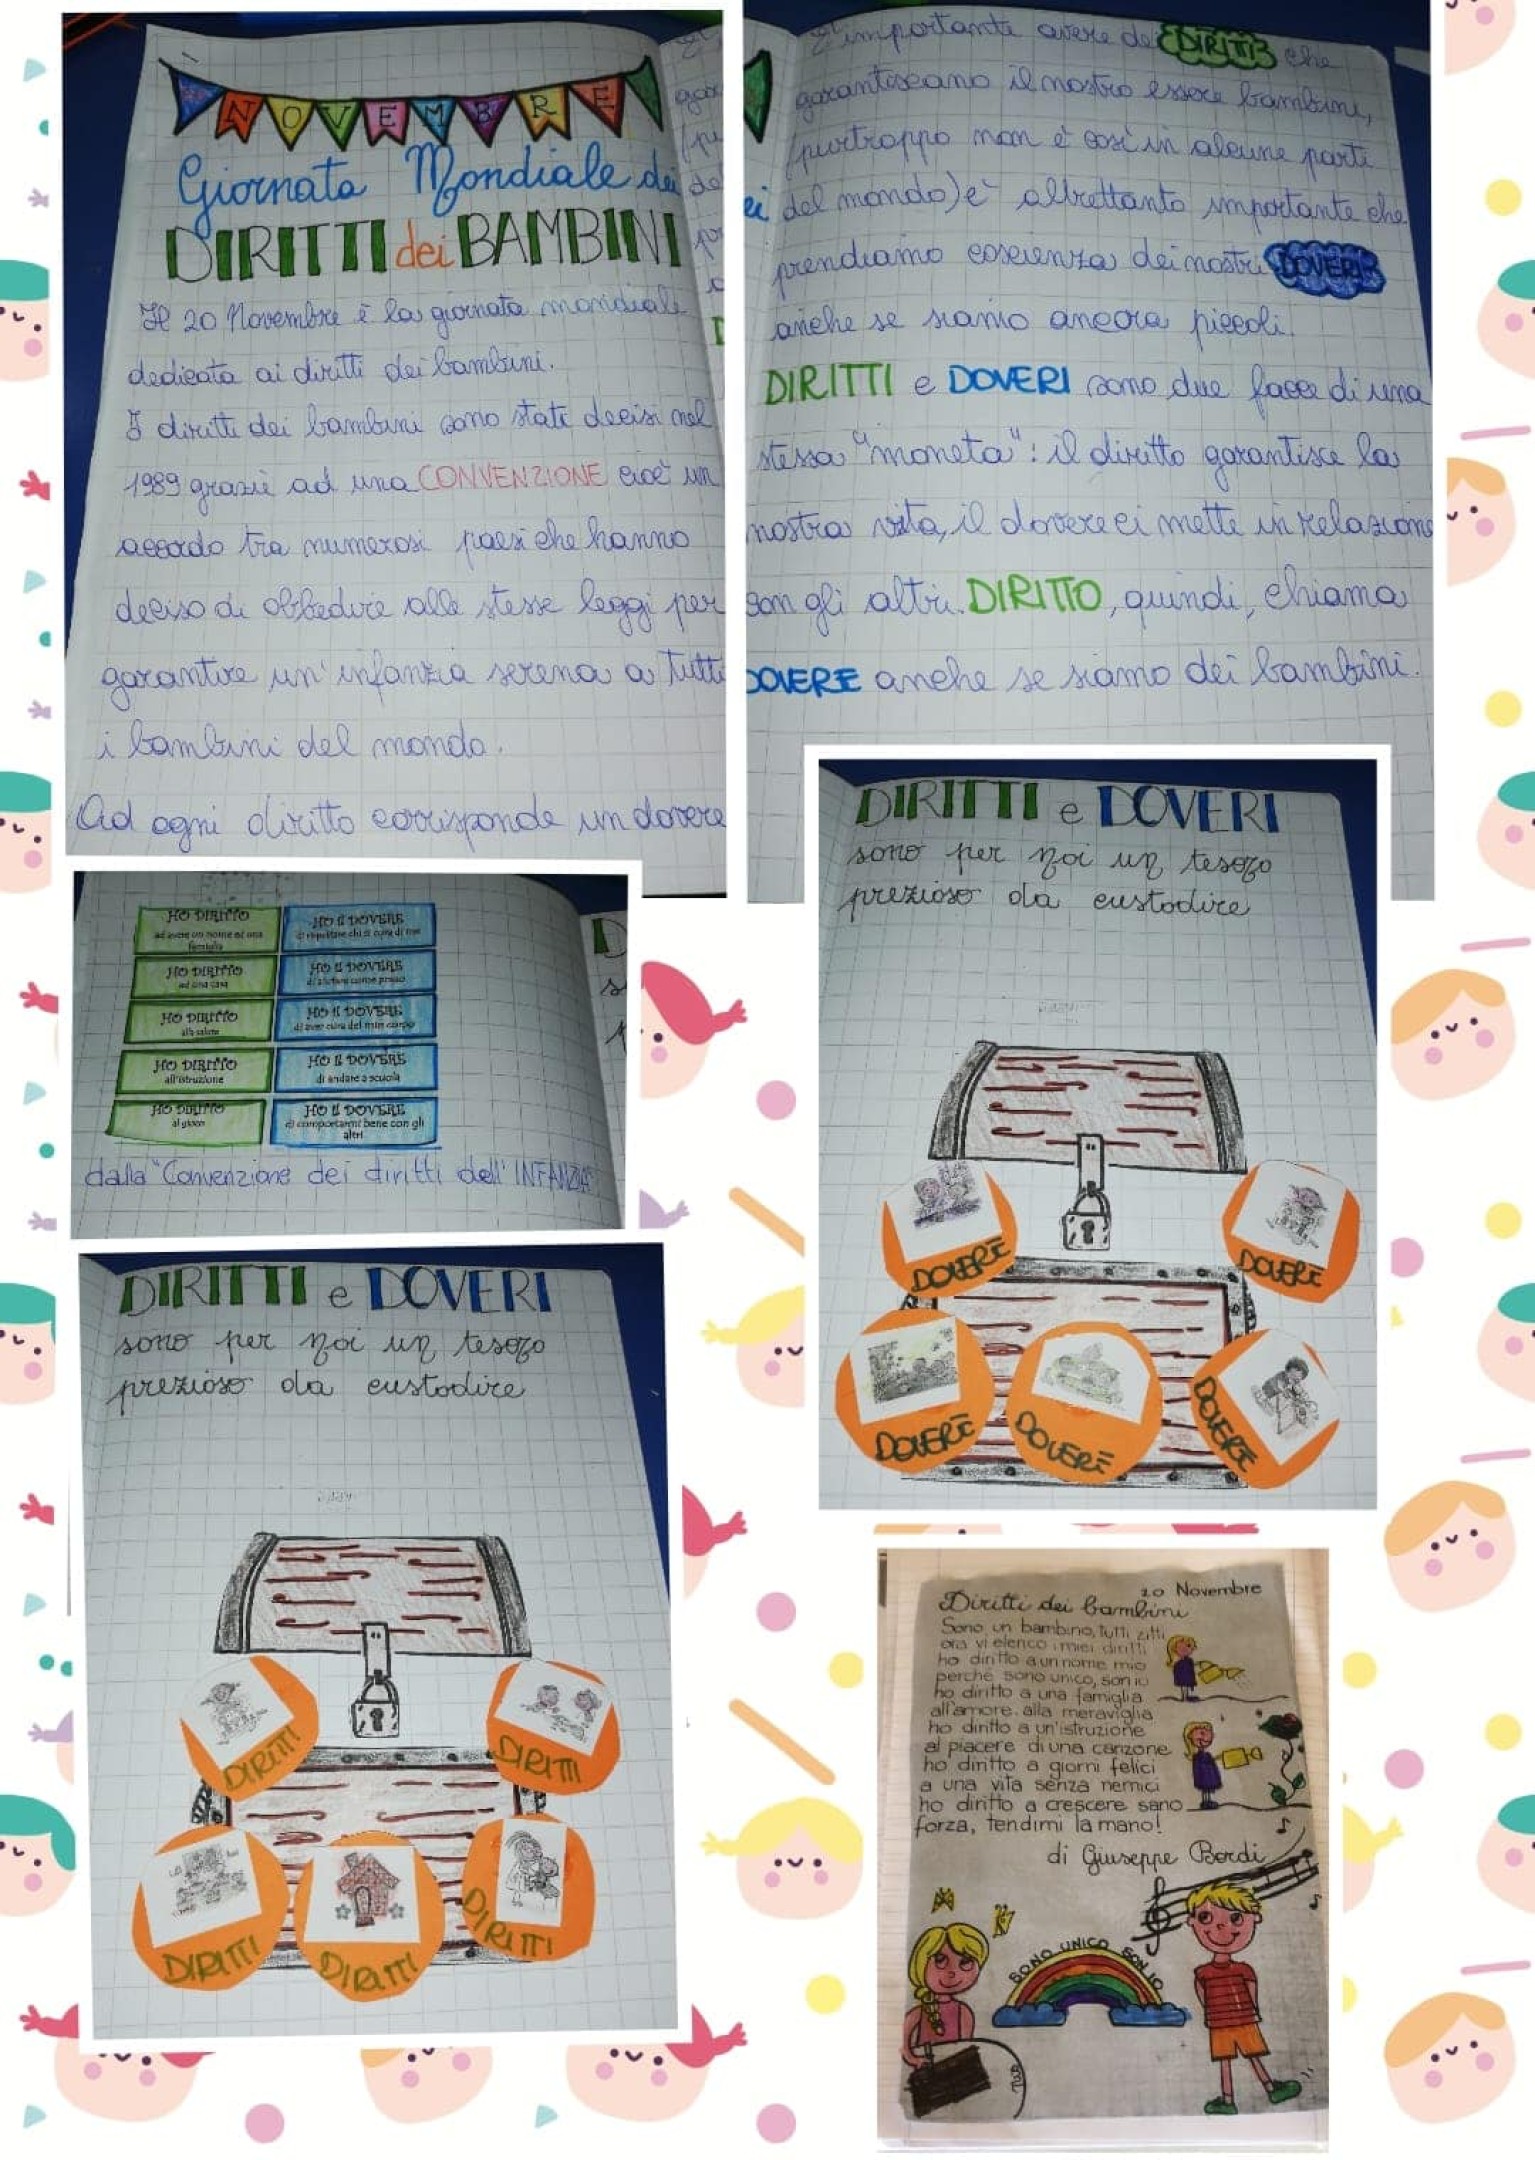 NOVEMBRE
Giornata Mondiale dei
DIRITTI dei BAMBINI
Il 20 Novembre è la giornata mondiale
dedicata ai diritti dei bambini.
I diritti dei bambini sono stati decisi nel
1989 grazie ad una CONVENZIONE cioè un
accordo tra numerosi paesi che hanno
deciso di obbedire alle stesse leggi per
garantire un'infanzia serena a tutti
i bambini del mondo.
Ad ogni diritto corrisponde un dovere
È importante avere dei DIRITTI che
garantiscano il nostro essere bambini,
(purtroppo non è così in alcune parti
del mondo) è altrettanto importante che
prendiamo coscienza dei nostri DOVERI
anche se siamo ancora piccoli.
DIRITTI e DOVERI sono due facce di una
stessa "moneta": il diritto garantisce la
nostra vita, il dovere ci mette in relazione
con gli altri. DIRITTO, quindi, chiama
DOVERE anche se siamo dei bambini.
HO DIRITTO
ad avere un nome ed una
famiglia
HO IL DOVERE
di rispettare chi si cura di me
HO DIRITTO
ad una casa
HO IL DOVERE
HO DIRITTO
alla salute
HO IL DOVERE
di aver cura del mio corpo
HO DIRITTO
all'istruzione
HO IL DOVERE
di andare a scuola
HO DIRITTO
al gioco
HO IL DOVERE
di comportarmi bene con gli
altri
dalla "Convenzione dei diritti dell'INFANZIA"
DIRITTI e DOVERI
sono per noi un tesoro
prezioso da custodire
DOVERE
DOVERE
DOVERE
DOVERE
DOVERE
DIRITTI e DOVERI
sono per noi un tesoro
prezioso da custodire
DIRITTI
DIRITTI
DIRITTI
DIRITTI
DIRITTI
20 Novembre
Diritti dei bambini
Sono un bambino, tutti zitti
ora vi elenco i miei diritti
ho diritto a un nome mio
perché sono unico, son io
ho diritto a una famiglia
all'amore, alla meraviglia
ho diritto a un'istruzione
al piacere di una canzone
ho diritto a giorni felici
a una vita senza nemici
ho diritto a crescere sano
forza, tendimi la mano!
di Giuseppe Bordi
SONO UNICO SON IO